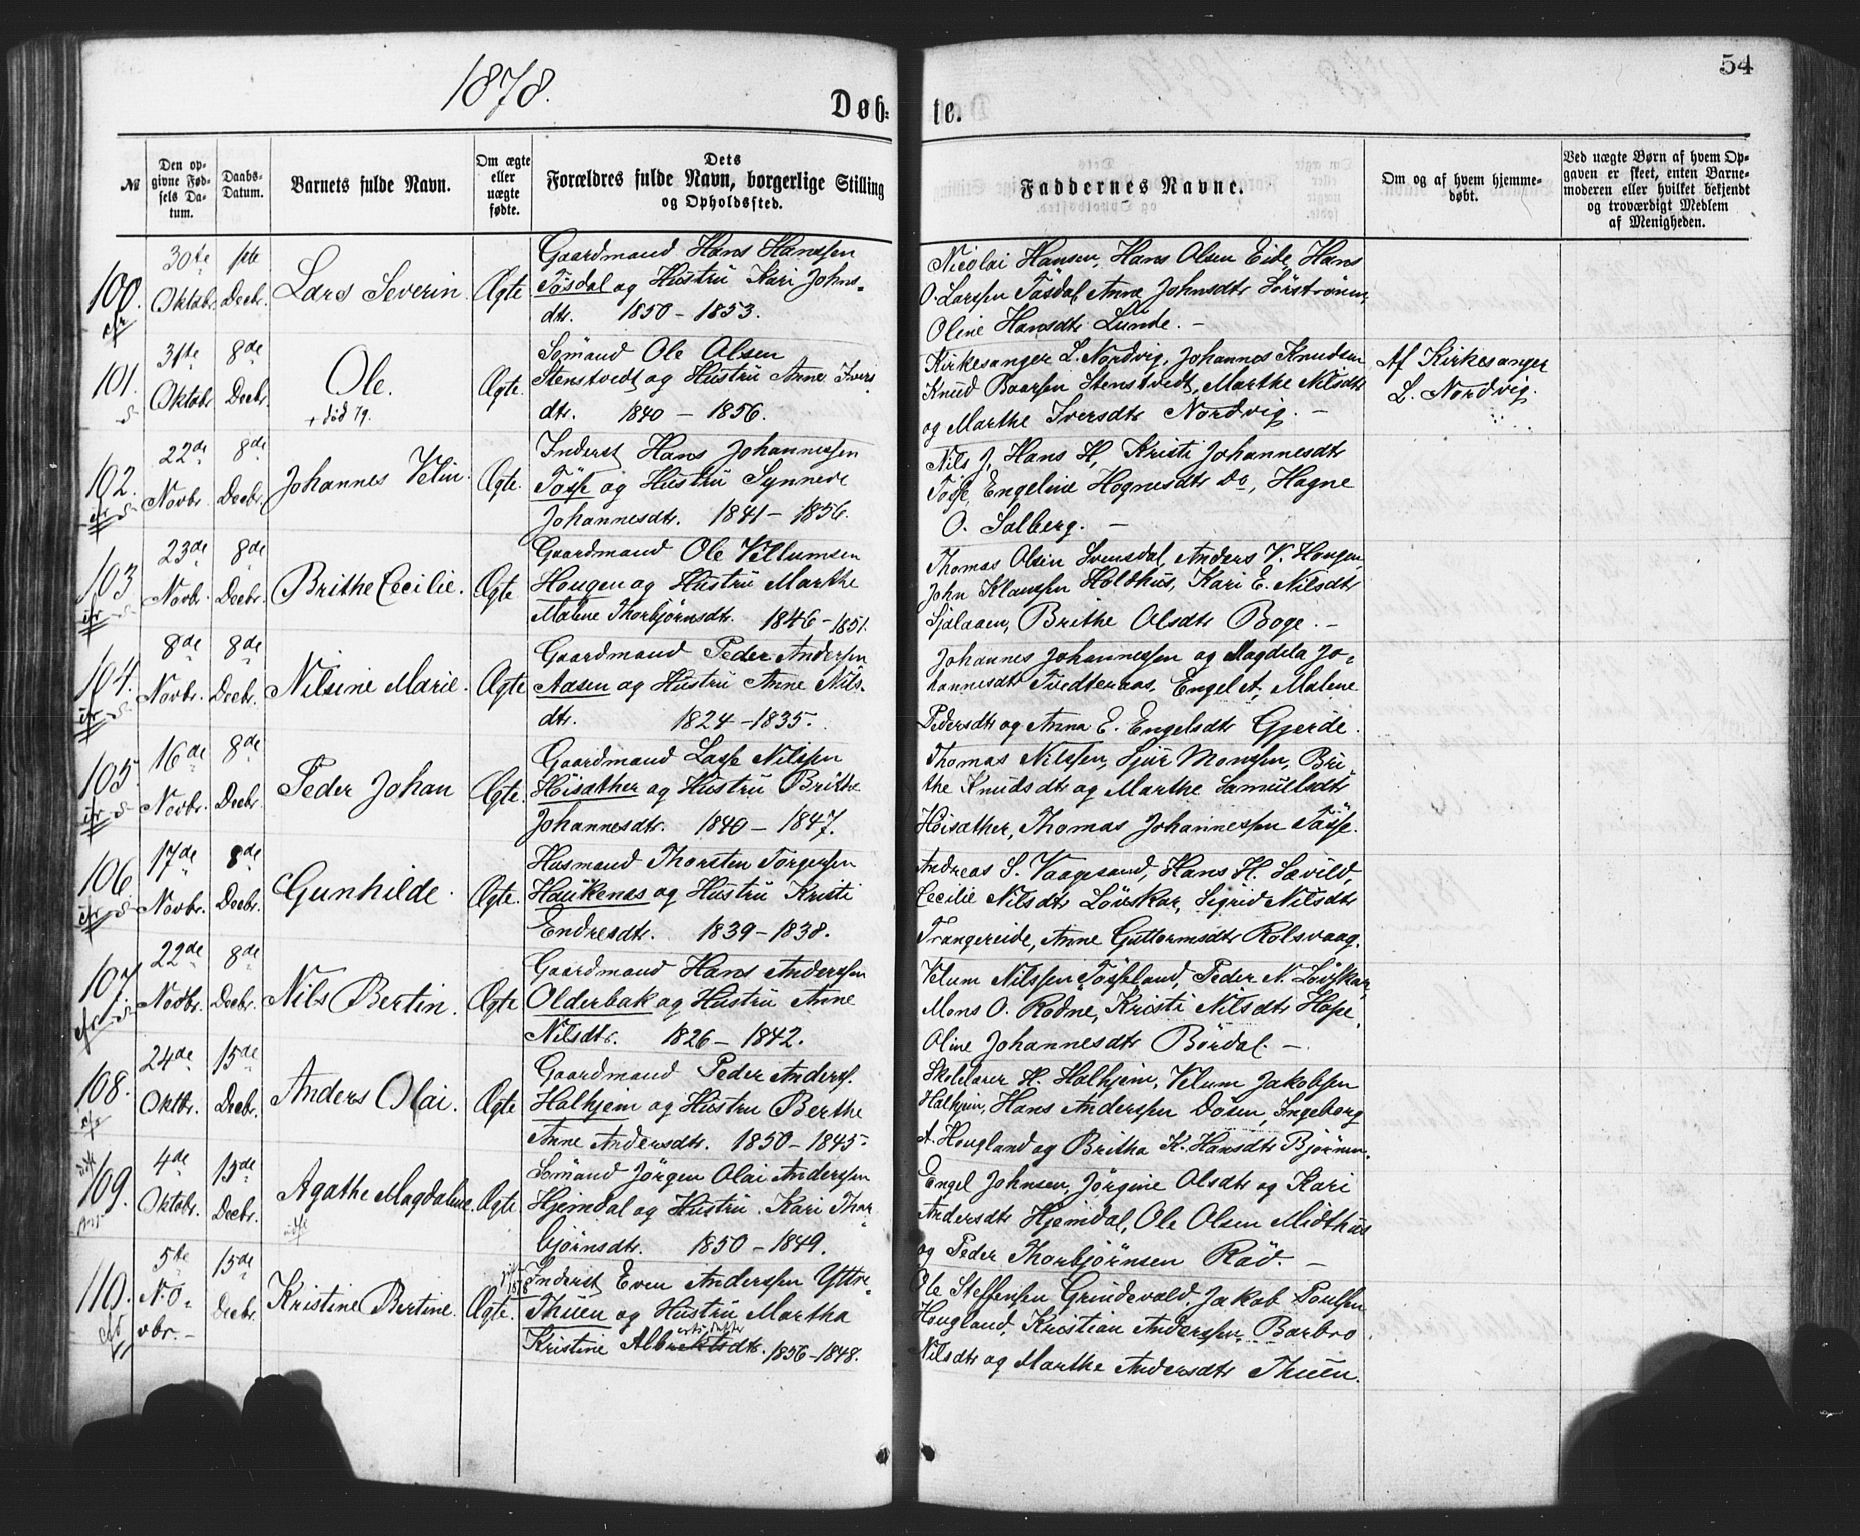 1878.
54
Døb-
te.
№
Den op-
givne Fød-
sels Da-
tum.
Daabs-
Datum.
Barnets fulde Navn.
Om ægte
eller
uægte
fødte.
Dets
Forældres fulde Navn, borgerlige Stilling
og Opholdssted.
Faddernes Navne.
Om og af hvem hjemme-
døbt.
Ved uægte Børn af hvem Op-
gaven er skeet, enten Barne-
moderen eller hvilket bekjendt
og troværdigt Medlem
af Menigheden.
100.
30te
Oktobr.
1ste
Decbr.
Lars Severin
Ægte
Gaardmand Hans Hanssen
Tøsdal og Hustru Kari Johns-
dtr. 1850 - 1853.
Nicolai Hansen, Hans Olsen Eide, Hans
O. Larssen Tøsdal, Anne Johnsdtr Sørstrønen,
Oline Hansdtr Lunde. -
101.
31te
Oktobr
8de
Decbr.
Ole.
+ død 79.
Ægte.
Sømand Ole Olsen
Stenstvedt og Hustru Anne Ivers
dtr. 1840 - 1856.
Kirkesanger L. Nordvig, Johannes Knudsen
Knud Baarsen Stenstvedt, Marthe Nilsdtr
og Marthe Iversdtr Nordvig. -
Af Kirkesanger
L. Nordvig.
102.
22de
Novbr.
8de
Decbr.
Johannes Velin
Ægte.
Inderst Hans Johannessen
Tøsse og Hustru Synneve
Johannesdtr. 1841 - 1856.
Nils J, Hans H, Kristi Johannesdtr
Tøsse, Engeline Hognesdtr Do, Hagne
O. Salberg. -
103
23de
Novbr.
8de
Decbr.
Brithe Cecilie.
Ægte
Gaardmand Ole Vellumsen
Hougen og Hustru Marthe
Malene Thorbjørnsdtr. 1846 - 1851.
Thomas Olsen Svensdal, Anders V. Hougen,
John Klaussen Holdhus, Kari E. Nilsdtr
Sjølaaen, Brithe Olsdtr Boge. -
104.
8de
Novbr.
8de
Decbr.
Nilsine Marie.
Ægte
Gaardmand Peder Andersen
Aasen og Hustru Anne Nils-
dtr. 1824 - 1835.
Johannes Johannessen og Magdela Jo-
hannesdtr Tvedteraas, Engel A, Malene
Pedersdtr og Anna E. Engelsdtr Gjerde.
105.
16de
Novbr.
8de
Decbr.
Peder Johan
Ægte.
Gaardmand Lasse Nilssen
Høisæther og Hustru Brithe
Johannesdtr. 1840 - 1847.
Thomas Nilssen, Sjur Monssen, Bri
the Knudsdtr og Marthe Samuelsdtr
Høisæther, Thomas Johannessen Tøsse.
106.
17de
Novbr.
8de
Decbr.
Gunhilde.
Ægte.
Husmand Thorsten Torgersen
Haukenæs og Hustru Kristi
Endresdtr. 1839 - 1838.
Andreas S. Vaagesund, Hans H. Sævild,
Cecilie Nilsdtr Løvskar, Sigrid Nilsdtr
Trangereide, Anne Guttormsdtr Rolsvaag.
107
22de
Novbr.
8de
Decbr.
Nils Bertin.
Ægte
Gaardmand Hans Anderssen
Olderbak og Hustru Anne
Nilsdtr. 1826 - 1842.
Velum Nilssen Tøsseland, Peder N. Løvskar,
Mons O. Rødne, Kristi Nilsdtr Hope,
Oline Johannesdtr Børdal. -
108.
24de
Oktbr.
15de
Decbr.
Anders Olai.
Ægte
Gaardmand Peder Anderss.
Halhjem og Hustru Berthe
Anne Andersdtr. 1850 - 1845
Skolelærer H. Halhjem, Velum Jakobsen
Halhjem, Hans Anderssen Døsen, Ingeborg
A. Hougland og Britha K. Hansdtr Bjørnen.
109.
4de
Oktobr.
15de
Decbr.
Agathe Magdalene.
Ægte
Sømand Jørgen Olai Anderssen
Hjemdal og Hustru Kari Thor-
bjørnsdtr. 1850 - 1849.
Engel Johnsen, Jørgine Olsdtr og Kari
Andersdtr Hjemdal, Ole Olsen Midthus
og Peder Thorbjørnsen Rød. -
110.
5te
No-
vbr. -
15de
Decbr.
Kristine Bertine.
Ægte.
Inderst Even Anderssen Yttre-
Thuen og Hustru Martha
Kristine Albrektsdtr. 1856 - 1848.
Ole Steffensen Grindevold, Jakob Poulsen
Hougland, Kristian Anderssen, Barbro
Nilsdtr og Marthe Andersdtr Thuen.